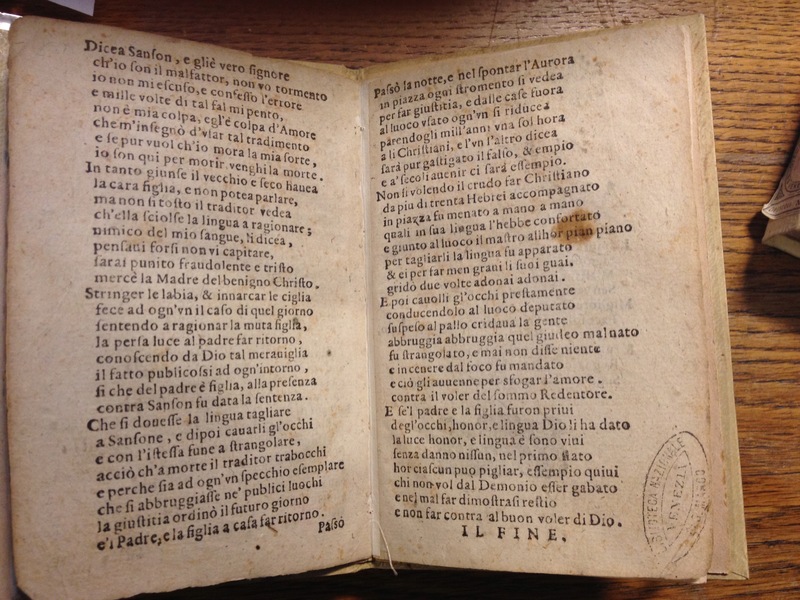 Dicea Sanson, e gliè vero signore
ch'io son il malfattor, non vo tormento
io non mi escuso, e confesso l'errore
e mille volte di tal fal mi pento,
non è mia colpa, egl'è colpa d'Amore
che m'insegnò d'vsar tal tradimento
e se pur vuol ch'io mora la mia sorte,
io son qui per morir venghi la morte.
In tanto giunse il vecchio e seco hauea
la cara figlia, e non potea parlare,
ma non si tosto il traditor vedea
ch'ella sciolse la lingua a ragionare;
nimico del mio sangue, li dicea,
pensaui forsi non vi capitare,
sarai punito fraudolente e tristo
mercè la Madre del benigno Christo.
Stringer le labia, & innarcar le ciglia
fece ad ogn'vn il caso di quel giorno
sentendo a ragionar la muta figlia,
la persa luce al padre far ritorno,
conoscendo da Dio tal merauiglia
il fatto publicossi ad ogn'intorno,
si che del padre è figlia, alla presenza
contra Sanson fu data la sentenza.
Che si douesse la lingua tagliare
a Sansone, e dipoi cauarli gl'occhi
e con l'istessa fune a strangolare,
acciò ch'a morte il traditor trabocchi
e perche sia ad ogn'vn specchio esemplare
che si abbruggiasse ne' publici luochi
la giustitia ordinò il futuro giorno
e'l Padre, e la figlia a casa far ritorno.
Passò
Passò la notte, e nel spontar l'Aurora
in piazza ogni stromento si vedea
per far giustitia, e dalle case fuora
al luoco vsato ogn'vn si riducea
parendogli mill'anni vna sol hora
a li Christiani, e l'vn l'altro dicea
sarà pur gastigato il falso, & empio
e a' secoli auenir ci sarà essempio.
Non si volendo il crudo far Christiano
da piu di trenta Hebrei accompagnato
in piazza fu menato a mano a mano
quali in sua lingua l'hebbe confortato
e giunto al luoco il mastro allhor pian piano
per tagliarli la lingua fu apparato
& ei per far men grani li suoi guai,
gridò due volte adonai adonai.
E poi cauolli gl'occhi prestamente
conducendolo al luoco deputato
suspeso al palio cridaua la gente
abbruggia abbruggia quel giudeo mal nato
fu strangolato, e mai non disse niente
e in cenere dal foco fu mandato
e ciò gli auuenne per sfogar l'amore.
contra il voler del sommo Redentore.
E se'l padre e la figlia furon priui
degl'occhi, honor, e lingua Dio li ha dato
la luce honor, e lingua e sono viui
senza danno nissun, nel primo stato
hor ciascun puo pigliar, essempio quiui
chi non vol dal Demonio esser gabato
e nel mal far dimostrasi restio
e non far contra al buon voler di Dio.
IL FINE.
BIBLIOTECA NAZIONALE
VENEZIA